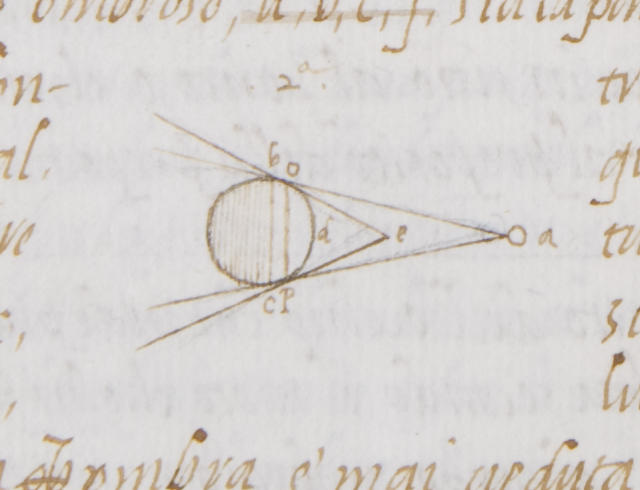 ombroso, a, b, c, f, sia la par
on- 2ª. tu
al. b o qu
ve d e a tu
c p
lu
ombra e' mai veduta